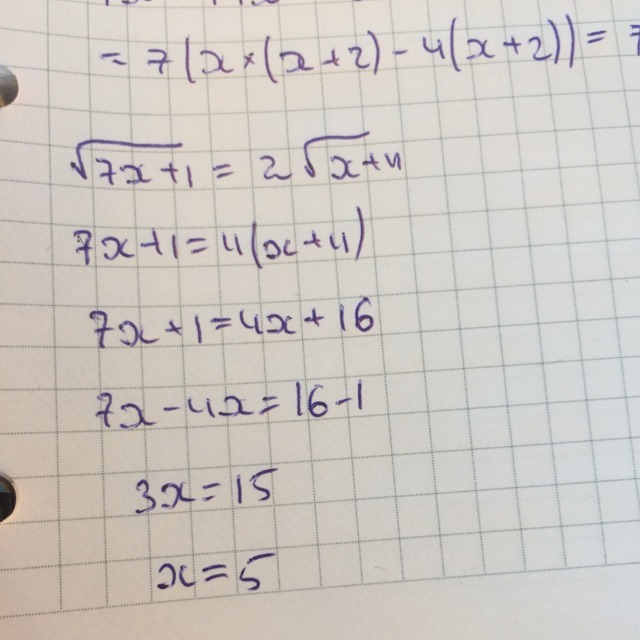 = 7(x×(x+2)-4(x+2)) = 7
√7x+1 = 2√x+4
7x+1=4(x+4)
7x+1=4x+16
7x-4x=16-1
3x=15
x=5